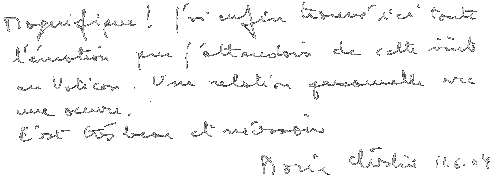 Magnifique ! J'ai enfin trouvé ici toute
l'émotion que j'attendais de cette visite
au Vatican. Une relation personnelle avec
une oeuvre.
C'est très beau et nécessaire
Marie 11.6.04